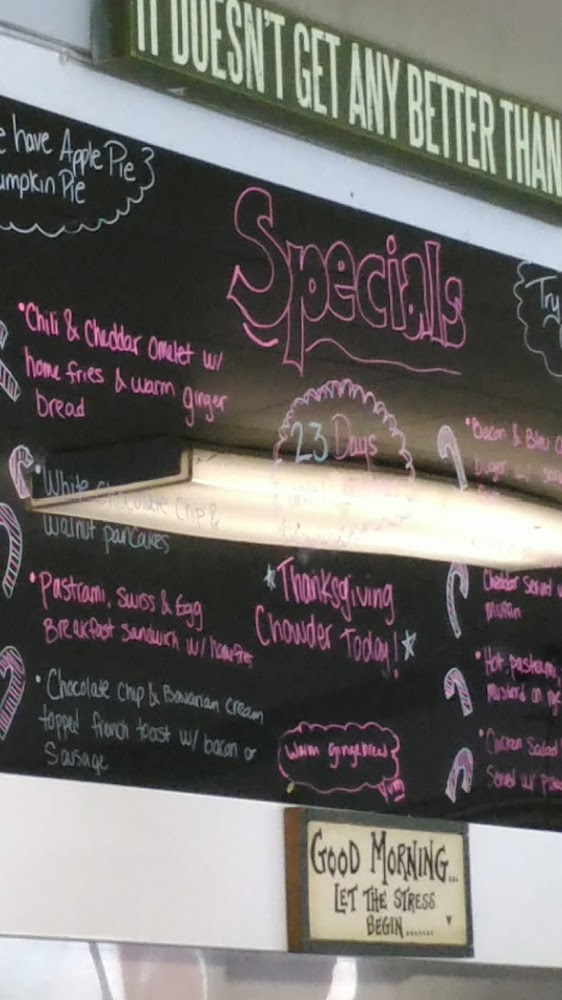 IT DOESN'T GET ANY BETTER THAN
have Apple Pie &
Pumpkin Pie
Specials
Try
• Chili & Cheddar Omelet w/
home fries & warm ginger
bread
• White Chocolate Chip &
Walnut pancakes
• Pastrami, Swiss & Egg
Breakfast Sandwich w/ homefries
• Chocolate Chip & Bavarian cream
topped french toast w/ bacon or
Sausage
23 Days
*Thanksgiving
Chowder Today!*
Warm gingerbread
Yum
• Bacon & Bleu
Burger
Cheddar Served
Muffin
• Hot pastrami,
mustard on rye
• Chicken Salad
Served w/
GOOD MORNING...
LET THE STRESS
BEGIN.......